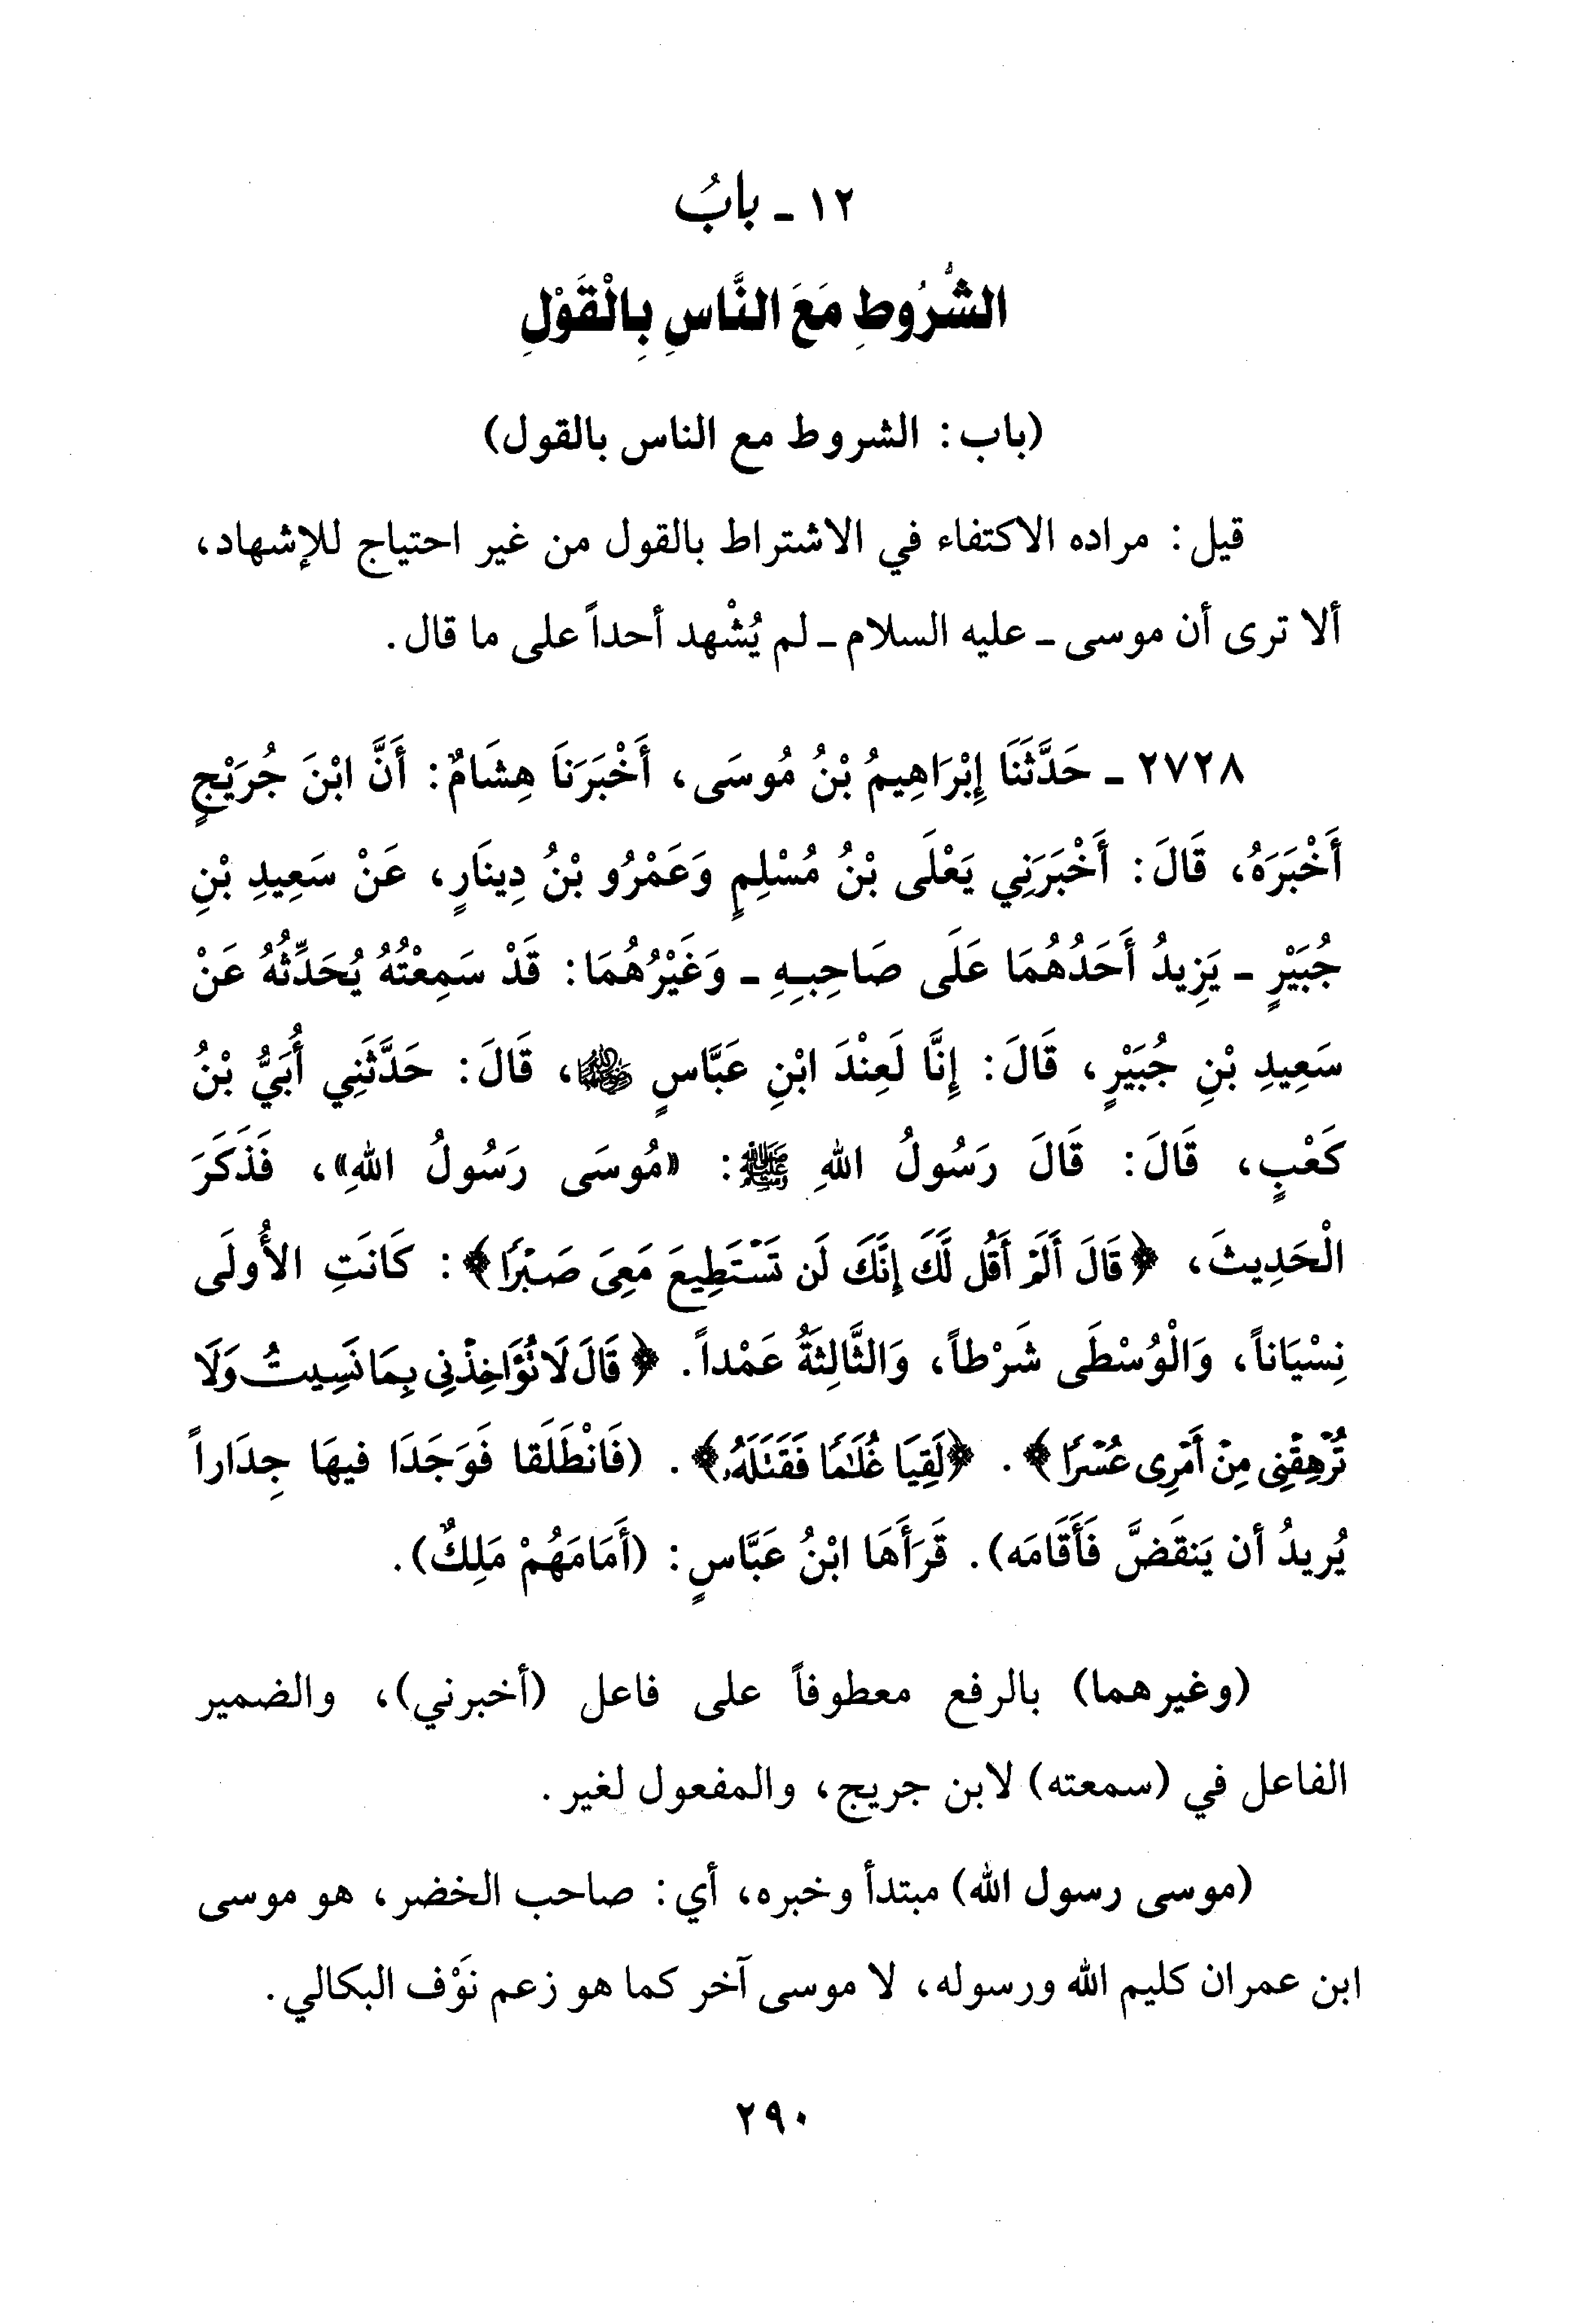 ١٢ - بابُ
الشُّرُوطِ مَعَ النَّاسِ بِالْقَوْلِ
(باب: الشروط مع الناس بالقول)
قيل: مراده الاكتفاء في الاشتراط بالقول من غير احتياج للإشهاد،
ألا ترى أن موسى - عليه السلام - لم يُشْهد أحداً على ما قال.
٢٧٢٨ - حَدَّثَنَا إِبْرَاهِيمُ بْنُ مُوسَى، أَخْبَرَنَا هِشَامٌ: أَنَّ ابْنَ جُرَيْجٍ
أَخْبَرَهُ، قَالَ: أَخْبَرَنِي يَعْلَى بْنُ مُسْلِمٍ وَعَمْرُو بْنُ دِينَارٍ، عَنْ سَعِيدِ بْنِ
جُبَيْرٍ - يَزِيدُ أَحَدُهُمَا عَلَى صَاحِبِهِ - وَغَيْرُهُمَا: قَدْ سَمِعْتُهُ يُحَدِّثُهُ عَنْ
سَعِيدِ بْنِ جُبَيْرٍ، قَالَ: إِنَّا لَعِنْدَ ابْنِ عَبَّاسٍ ﵄، قَالَ: حَدَّثَنِي أُبَيُّ بْنُ
كَعْبٍ، قَالَ: قَالَ رَسُولُ اللهِ ﷺ: «مُوسَى رَسُولُ اللهِ»، فَذَكَرَ
الْحَدِيثَ، ﴿قَالَ أَلَمْ أَقُل لَّكَ إِنَّكَ لَن تَسْتَطِيعَ مَعِىَ صَبْرًا﴾: كَانَتِ الأُولَى
نِسْيَاناً، وَالْوُسْطَى شَرْطاً، وَالثَّالِثَةُ عَمْداً. ﴿قَالَ لَا تُؤَاخِذْنِى بِمَا نَسِيتُ وَلَا
تُرْهِقْنِى مِنْ أَمْرِى عُسْرًا﴾. ﴿لَقِيَا غُلَٰمًا فَقَتَلَهُۥ﴾. (فَانْطَلَقا فَوَجَدَا فيهَا جِدَاراً
يُريدُ أن يَنقَضَّ فَأَقَامَه). قَرَأَهَا ابْنُ عَبَّاسٍ: (أَمَامَهُمْ مَلِكٌ).
(وغيرهما) بالرفع معطوفاً على فاعل (أخبرني)، والضمير
الفاعل في (سمعته) لابن جريج، والمفعول لغير.
(موسى رسول الله) مبتدأ وخبره، أي: صاحب الخضر، هو موسى
ابن عمران كليم الله ورسوله، لا موسى آخر كما هو زعم نَوْف البكالي.
٢٩٠